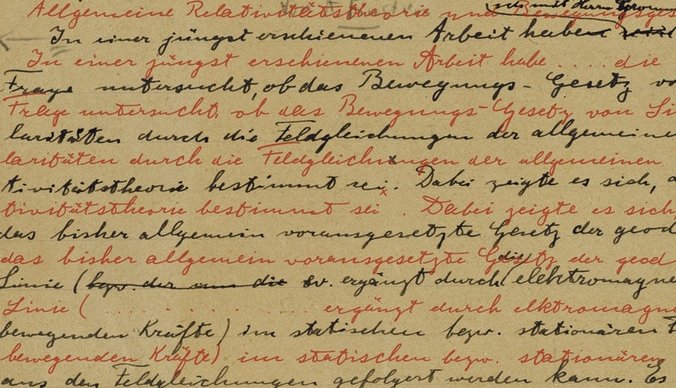 Allgemeine Relativitätstheorie und Bewegungsges
sich mit Herrn Gromm
In einer jüngst erschienenen Arbeit haben
In einer jüngst erschienenen Arbeit habe .... die
Frage untersucht, ob das Bewegungs-Gesetz vo
Frage untersucht, ob das Bewegungs-Gesetz von Si
laritäten durch die Feldgleichungen der allgemeine
laritäten durch die Feldgleichungen der allgemeinen
tivitätstheorie bestimmt sei. Dabei zeigte es sich, d
tivitätstheorie bestimmt sei. Dabei zeigte es sich
das bisher allgemein vorausgesetzte Gesetz der geod
das bisher allgemein vorausgesetzte Gesetz der geod
die
Linie (bzw. der um die ev. ergänzt durch elektromagne
Linie (. . . . . . . . . . ergänzt durch elktromagne
bewegenden Kräfte) im statischen bezw. stationären F
bewegenden Kräfte) im statischen bezw. stationären
aus den Feldgleichungen gefolgert werden kann. Es